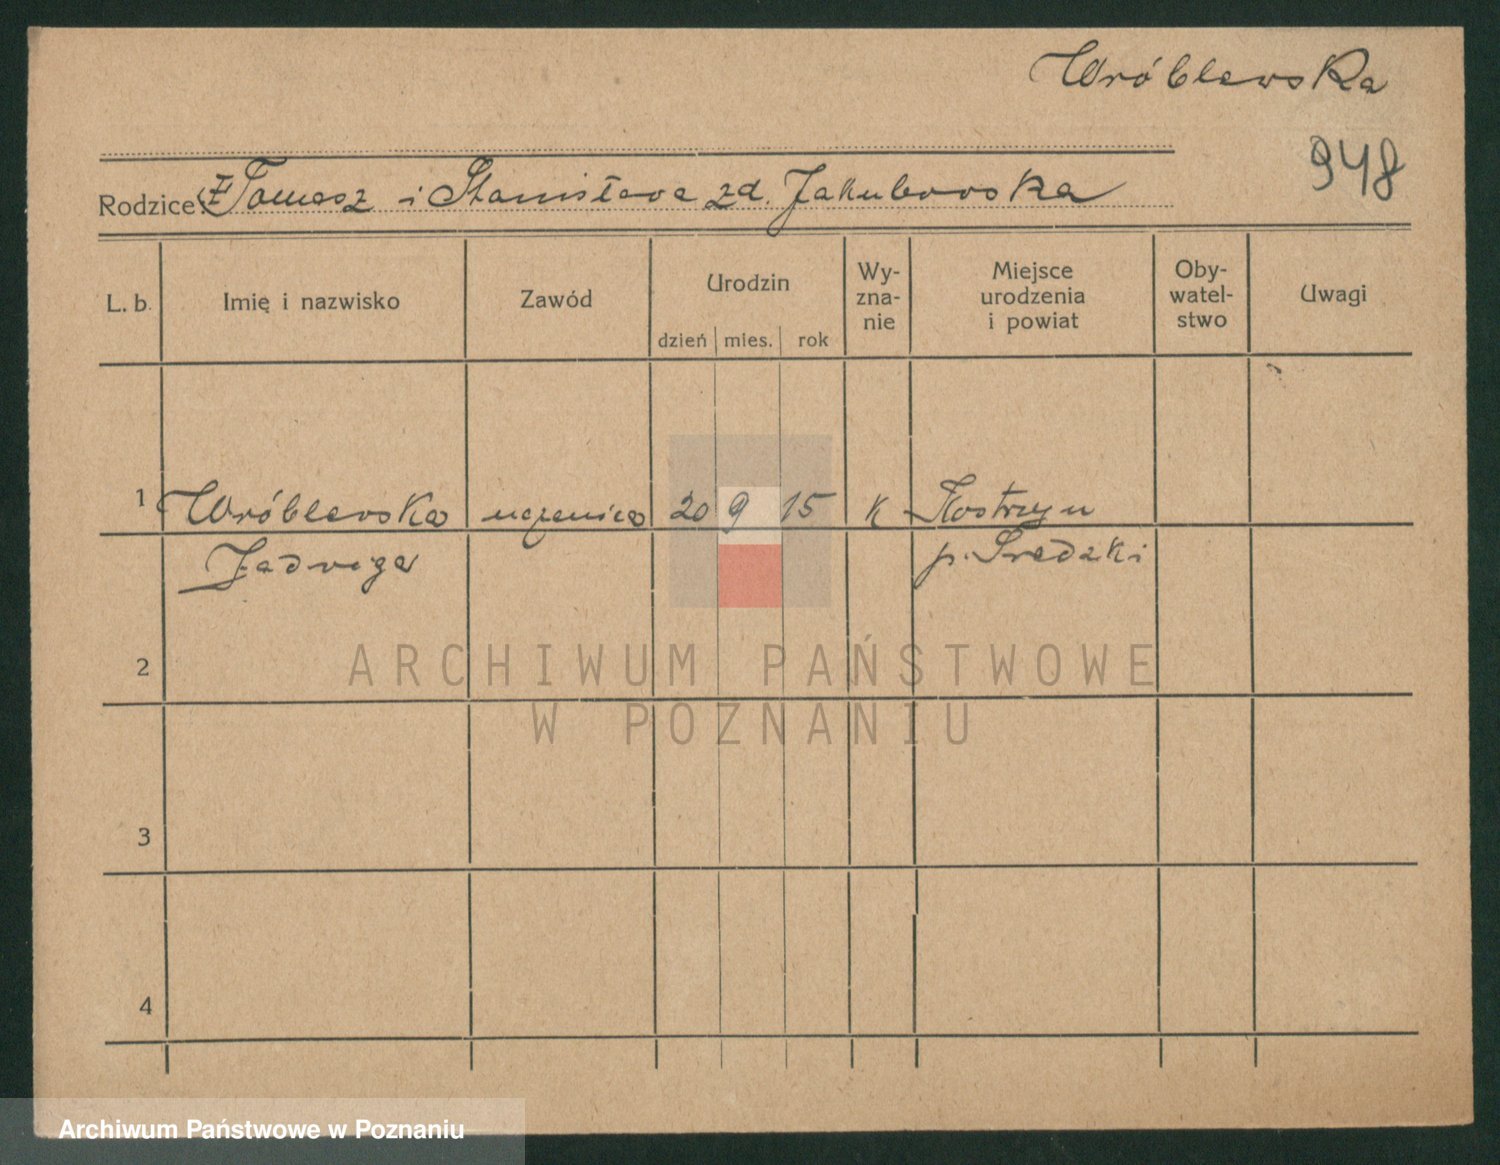 Wróblewska
948
Rodzice: Tomasz i Stanisława zd. Jakubowska
L. b.
Imię i nazwisko
Zawód
Urodzin
dzień mies. rok
Wy-
zna-
nie
Miejsce
urodzenia
i powiat
Oby-
watel-
stwo
Uwagi
1 Wróblewska uczenica 20 9 15 k Kostrzyn
Jadwiga p. Sredzki
2
3
4
ARCHIWUM PAŃSTWOWE
W POZNANIU
Archiwum Państwowe w Poznaniu